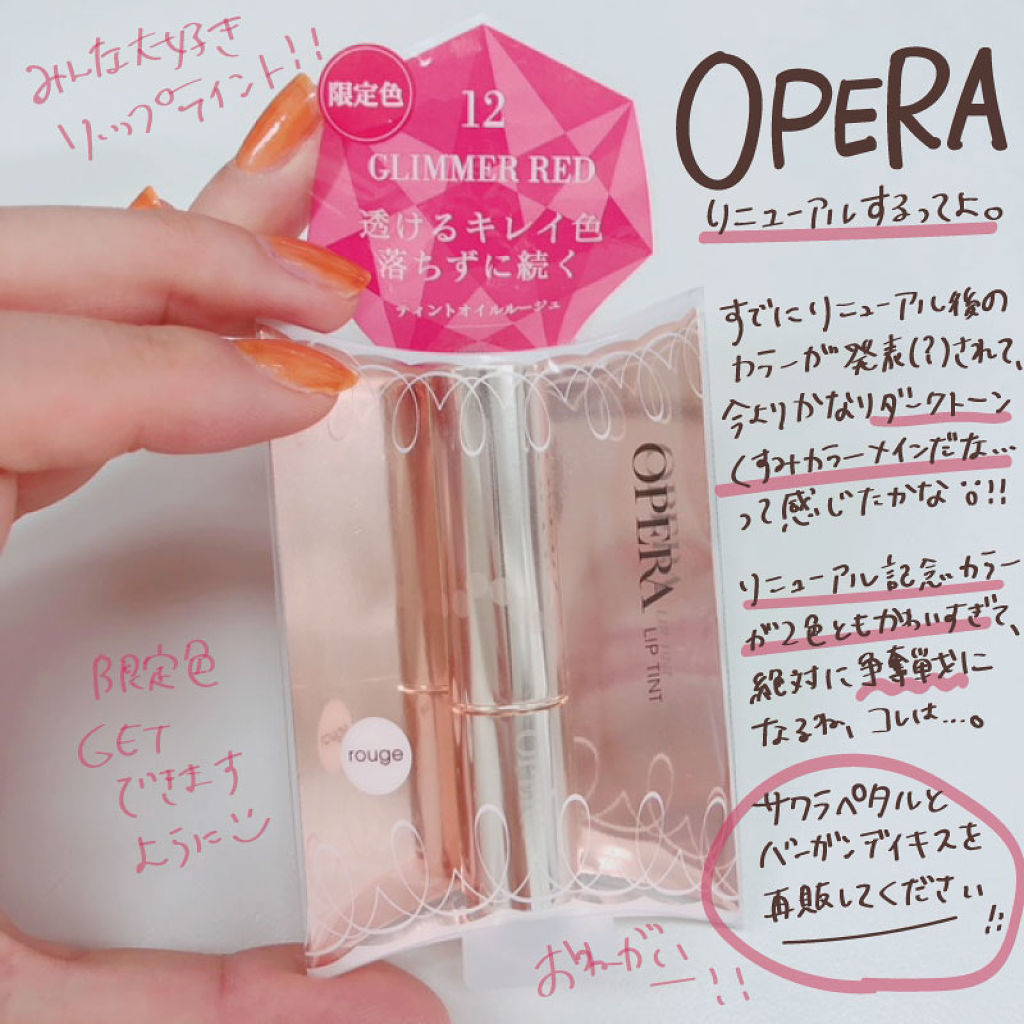 みんな大好き
リップティント!!
限定色
12
GLIMMER RED
透けるキレイ色
落ちずに続く
ティントオイルルージュ
OPERA
リニューアルするってよ。
すでにリニューアル後の
カラーが発表(?)されて、
今よりかなりダークトーン
くすみカラーメインだな…
って感じたかな!!
リニューアル記念カラー
が2色ともかわいすぎて、
絶対に争奪戦に
なるね、コレは…。
サクラペタルと
バーガンディキスを
再販してください!!
おねがいー!!
OPERA
LIP TINT
rouge
限定色
GET
できます
ように